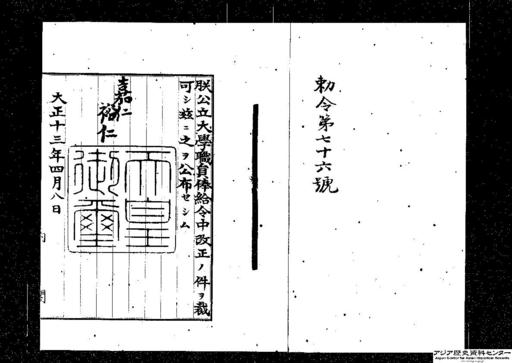 勅令第七十六號
朕公立大學職員俸給令中改正ノ件ヲ裁
可シ玆ニ之ヲ公布セシム
嘉仁
裕仁
天皇
御璽
大正十三年四月八日
内閣
アジア歴史資料センター
Japan Center for Asian Historical Records